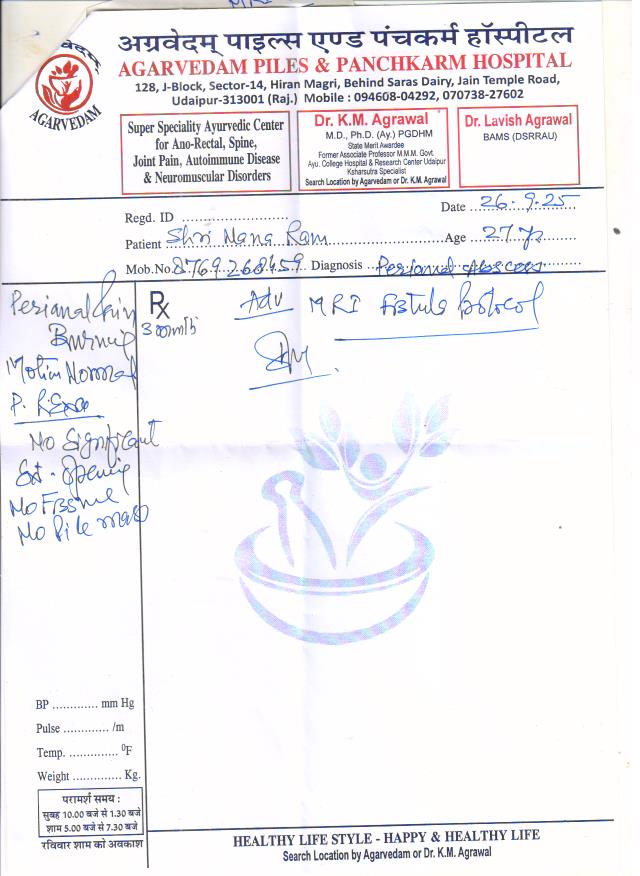 अग्रवेदम् पाइल्स एण्ड पंचकर्म हॉस्पीटल
AGARVEDAM PILES & PANCHKARM HOSPITAL
128, J-Block, Sector-14, Hiran Magri, Behind Saras Dairy, Jain Temple Road,
Udaipur-313001 (Raj.) Mobile : 094608-04292, 070738-27602
AGARVEDAM
Super Speciality Ayurvedic Center
for Ano-Rectal, Spine,
Joint Pain, Autoimmune Disease
& Neuromuscular Disorders
Dr. K.M. Agrawal
M.D., Ph.D. (Ay.) PGDHM
State Merit Awardee
Former Associate Professor M.M.M. Govt.
Ayu. College Hospital & Research Center Udaipur
Ksharsutra Specialist
Search Location by Agarvedam or Dr. K.M. Agrawal
Dr. Lavish Agrawal
BAMS (DSRRAU)
Regd. ID
Date 26.9.25
Patient Shri Nana Ram Age 27 yr
Mob.No. 8769268459 Diagnosis Perianal abscess
Perianal Pain
Burning
Motion Normal
P. R. Exa
No Significant
Ext. Opening
No Fissure
No Pile mass
Rx
3 month
Adv MRI Fistula Protocol
BP ............. mm Hg
Pulse ............. /m
Temp. .............. ⁰F
Weight .............. Kg.
परामर्श समय :
सुबह 10.00 बजे से 1.30 बजे
शाम 5.00 बजे से 7.30 बजे
रविवार शाम को अवकाश
HEALTHY LIFE STYLE - HAPPY & HEALTHY LIFE
Search Location by Agarvedam or Dr. K.M. Agrawal